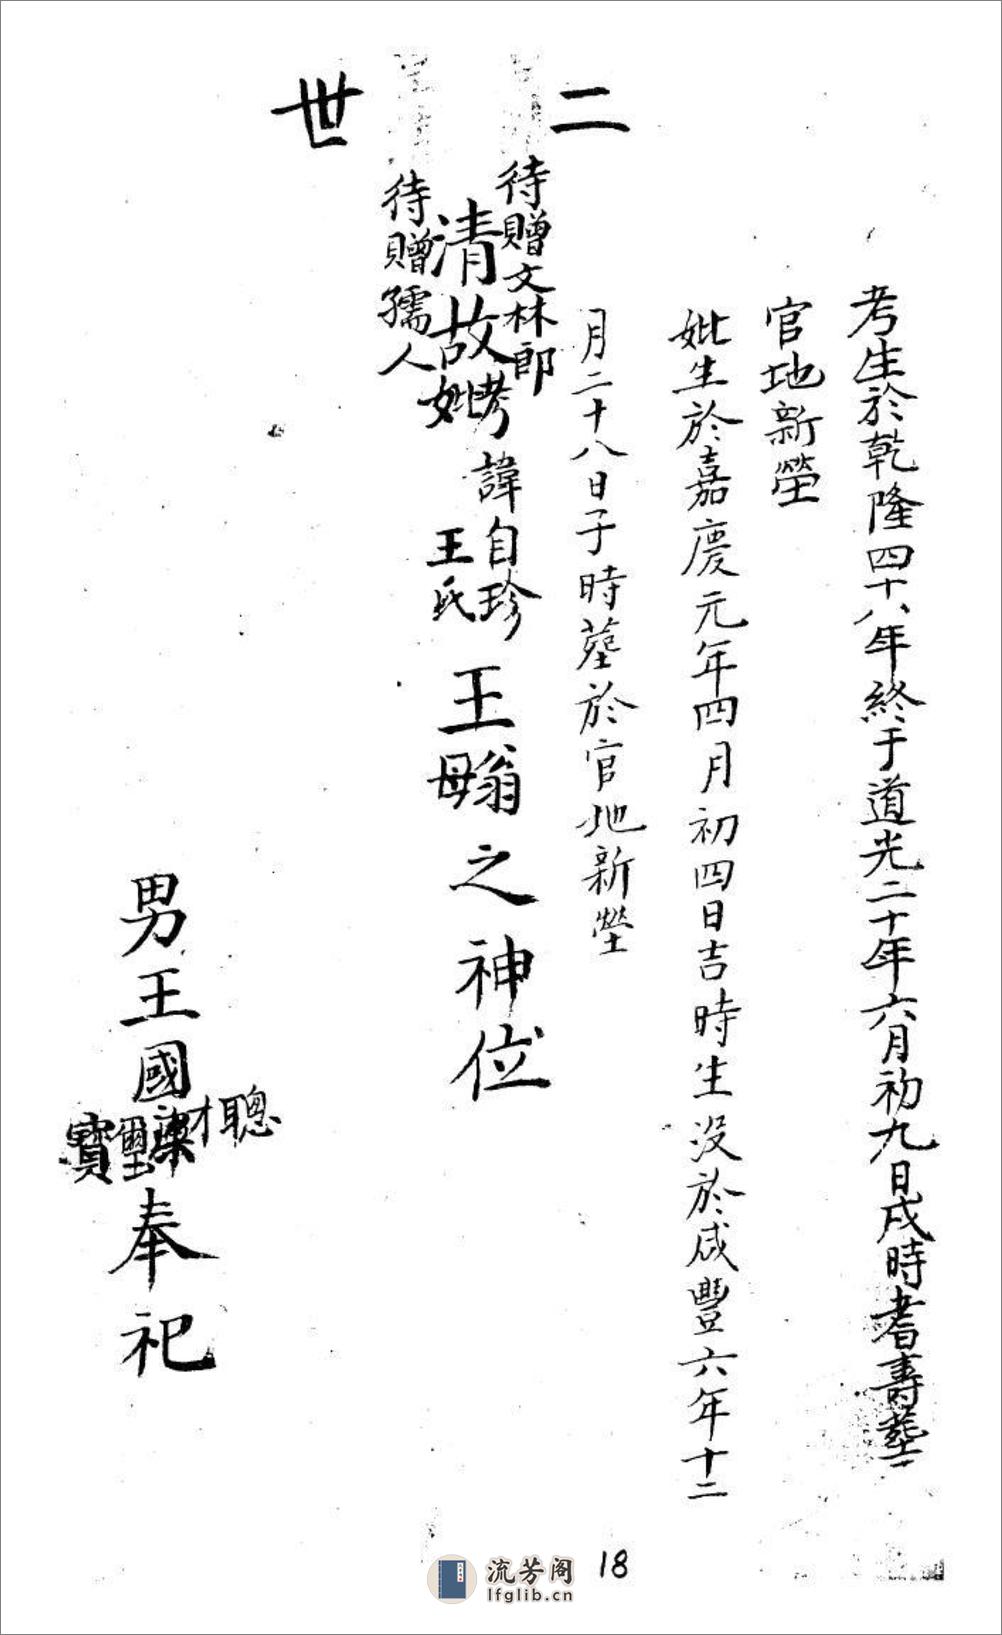 二世
考生於乾隆四十八年終于道光二十年六月初九日戌時耆壽葬
官地新塋
妣生於嘉慶元年四月初四日吉時生没於咸豐六年十二
月二十八日子時葬於官地新塋
待贈文林郎
清故考妣諱自珍王氏王翁母之神位
待贈孺人
男王國聰才樑璽寶奉祀
18
流芳阁
lfglib.cn